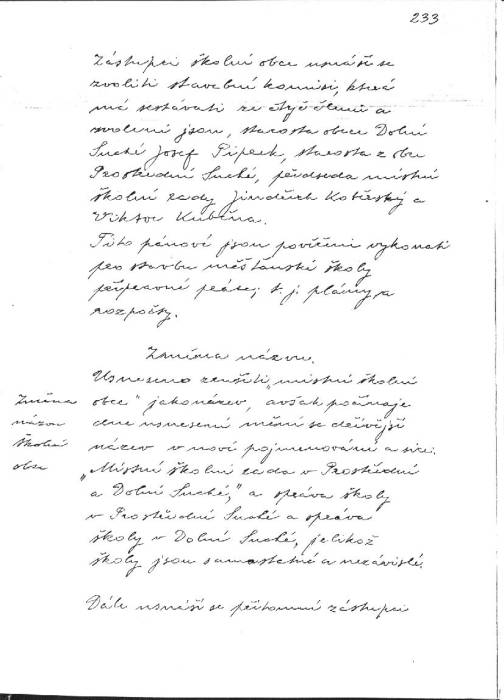 233
Zástupci školní obce usnáší se
zvoliti stavební komisi, která
má sestávati ze čtyř členů a
zvoleni jsou, starosta obce Dolní
Suché Josef Piprek, starosta z obce
Prostřední Suché, předseda místní
školní rady Jindřich Kotěský a
Viktor Kuběna.
Tito pánové jsou pověřeni vykonati
pro stavbu měšťanské školy
přípravné práce; t. j. plány a
rozpočty.
Změna názvu.
Usneseno zrušiti „místní školní
obce" jako název, avšak počínaje
dne usnesení mění se dřívější
název v nové pojmenování a sice:
„Místní školní rada v Prostřední
a Dolní Suché," a správa školy
v Prostřední Suché a správa
školy v Dolní Suché, jelikož
školy jsou samostatné a nezávislé.
Změna
názvu
školní
obce
Dále usnáší se přítomní zástupci